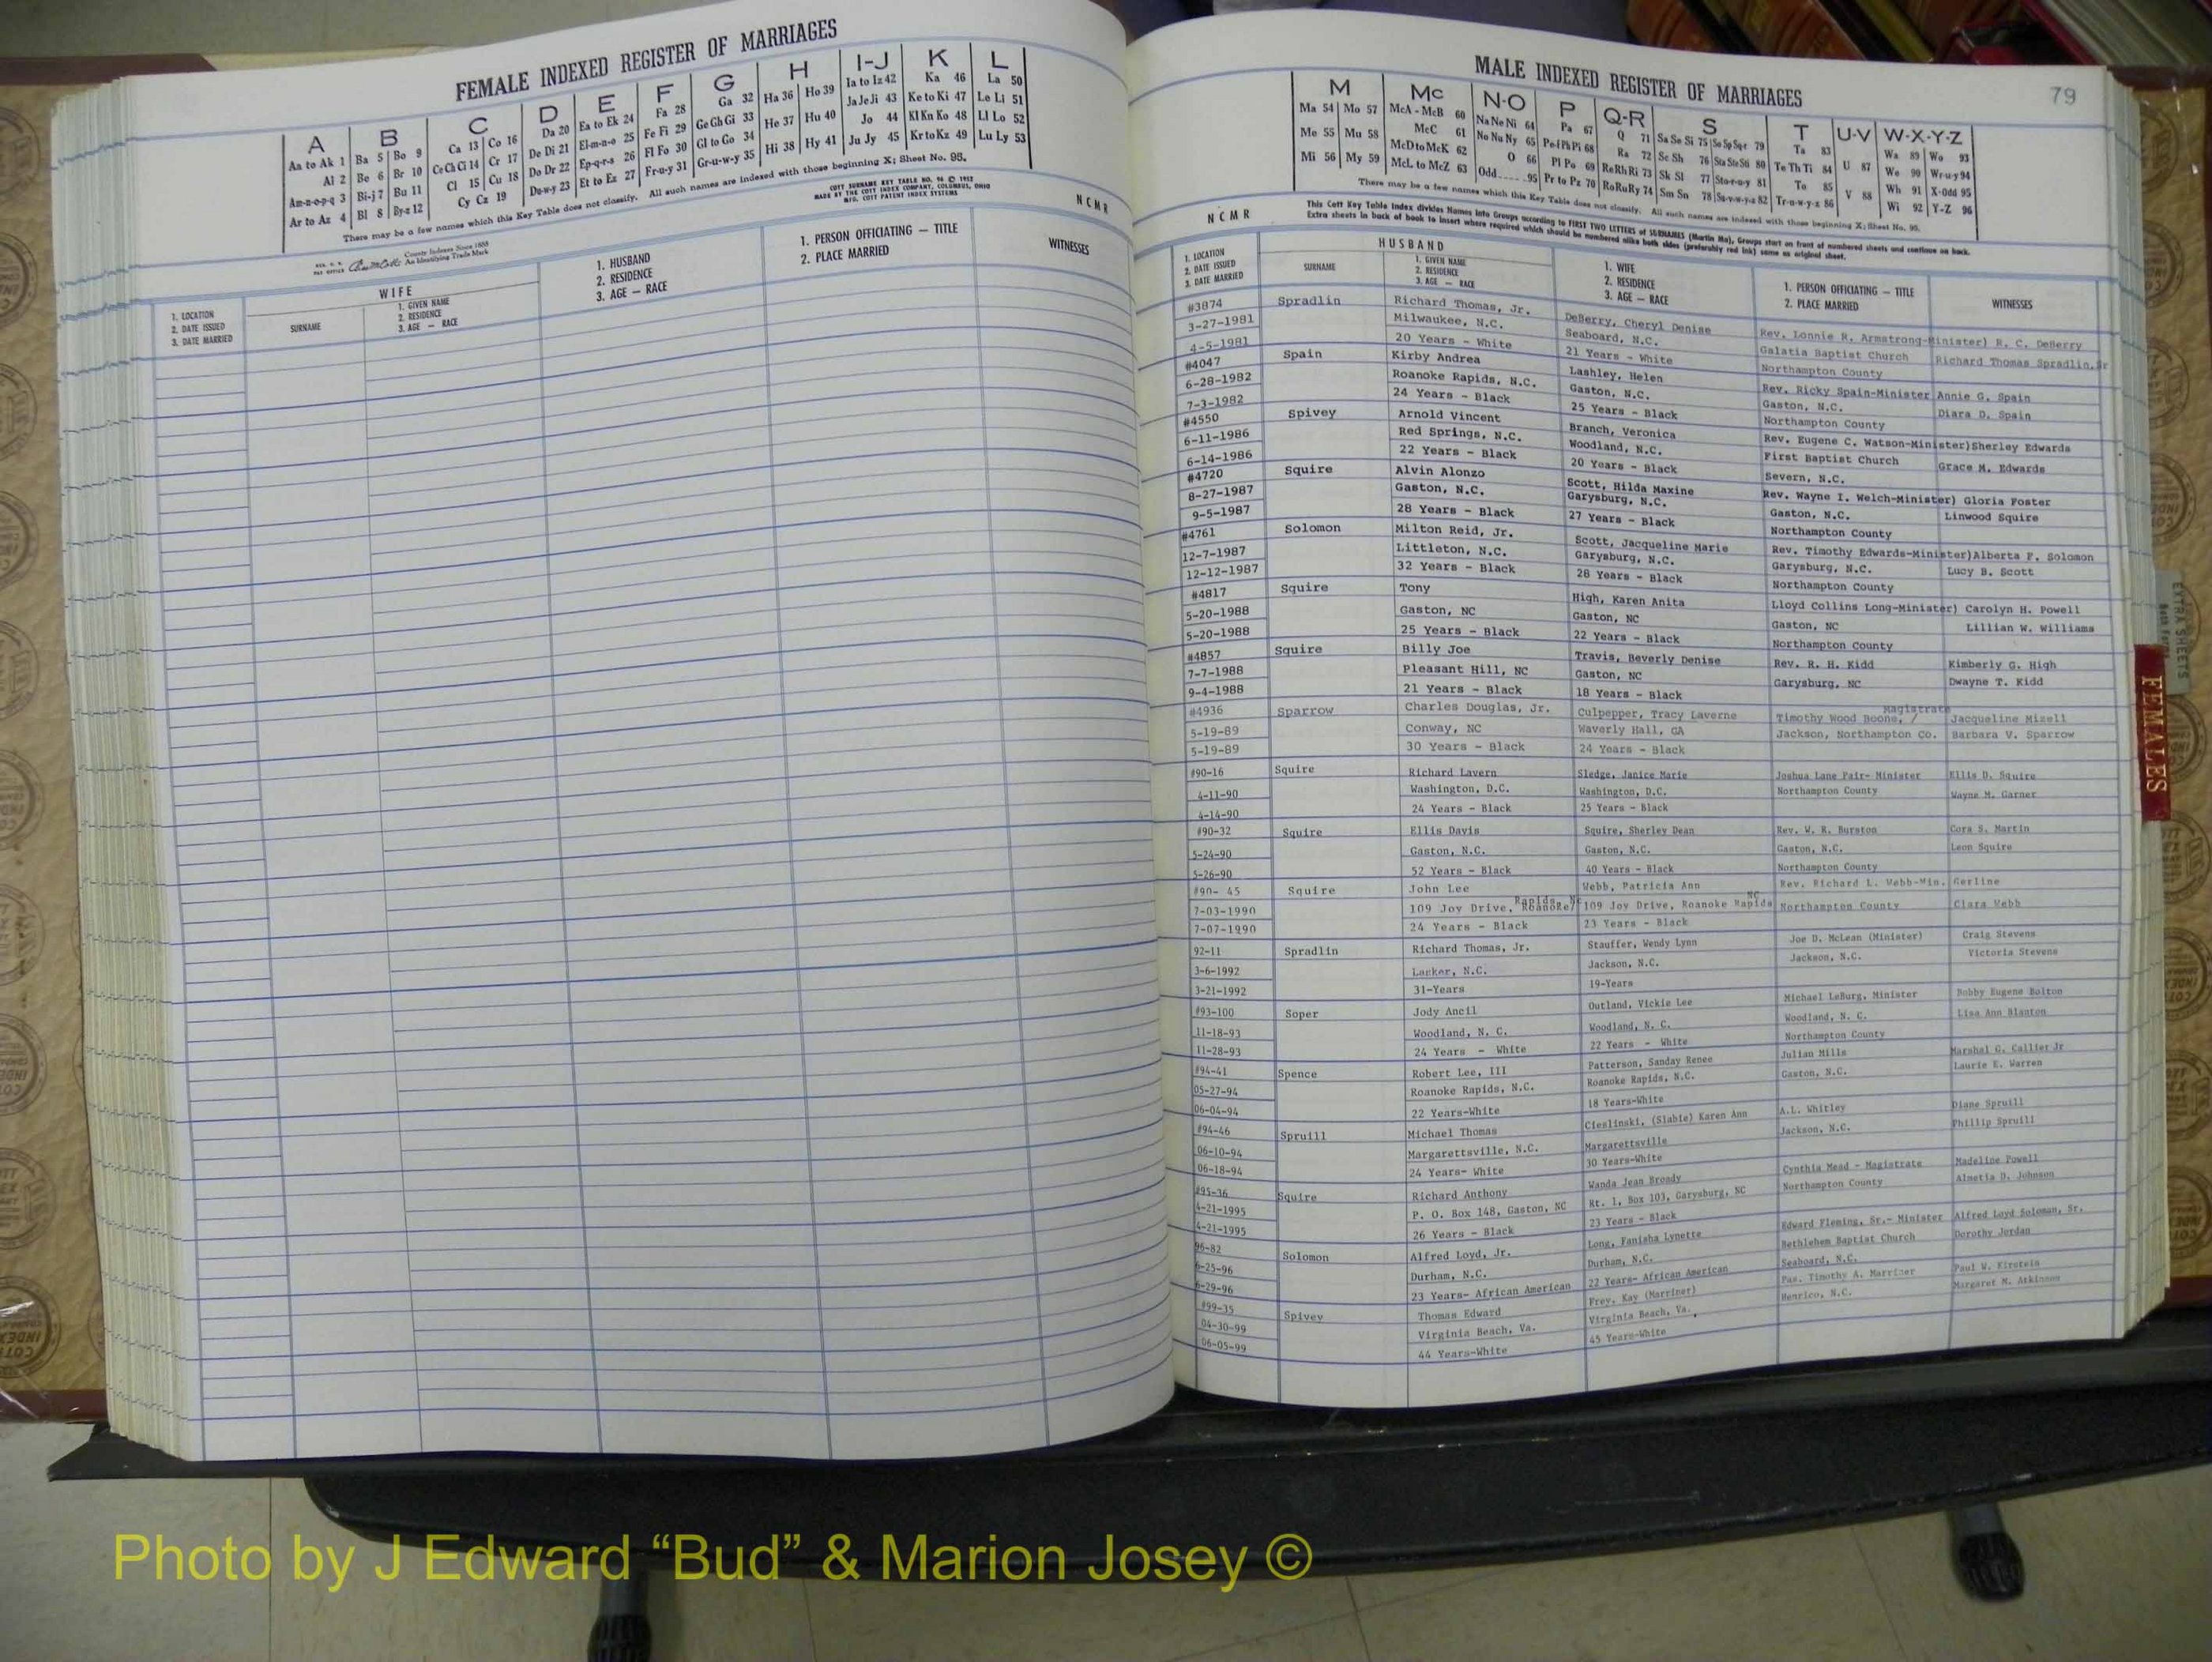 FEMALE INDEXED REGISTER OF MARRIAGES
A B C D E F G H I-J K L
Aa to Ak 1 Ba 5 Bo 9 Ca 13 Co 16 Da 20 Ea to Ek 24 Fa 28 Ga 32 Ha 36 Ho 39 Ia to Iz 42 Ka 46 La 50
Al 2 Be 6 Br 10 Ce Ch Ci 14 Cr 17 De Di 21 El-m-n-o 25 Fe Fi 29 Ge Gh Gi 33 He 37 Hu 40 Ja Je Ji 43 Ke to Ki 47 Le Li 51
Am-n-o-p-q 3 Bi-j 7 Bu 11 Cl 15 Cu 18 Do Dr 22 Ep-q-r-s 26 Fl Fo 30 Gl to Go 34 Hi 38 Hy 41 Jo 44 Kl Kn Ko 48 Ll Lo 52
Ar to Az 4 Bl 8 By-z 12 Cy Cz 19 Du-w-y 23 Et to Ez 27 Fr-u-y 31 Gr-u-w-y 35 Ju Jy 45 Kr to Kz 49 Lu Ly 53
There may be a few names which this Key Table does not classify. All such names are indexed with those beginning X; Sheet No. 95.
COTT SURNAME KEY TABLE NO. 96 © 1952
MADE BY THE COTT INDEX COMPANY, COLUMBUS, OHIO
MFG. COTT PATENT INDEX SYSTEMS
NCMR
County Indexes Since 1888
An Identifying Trade Mark
1. LOCATION
2. DATE ISSUED
3. DATE MARRIED
WIFE
SURNAME
1. GIVEN NAME
2. RESIDENCE
3. AGE — RACE
1. HUSBAND
2. RESIDENCE
3. AGE — RACE
1. PERSON OFFICIATING — TITLE
2. PLACE MARRIED
WITNESSES
MALE INDEXED REGISTER OF MARRIAGES
79
M Mc N-O P Q-R S T U-V W-X-Y-Z
Ma 54 Mo 57 McA - McB 60 Na Ne Ni 64 Pa 67 Q 71 Sa Se Si 75 So Sp Sq-r 79 Ta 83 U 87 Wa 89 Wo 93
Me 55 Mu 58 McC 61 No Nu Ny 65 Pe-f Ph Pi 68 Ra 72 Sc Sh 76 Sta Ste Sti 80 Te Th Ti 84 V 88 We 90 Wr-u-y 94
Mi 56 My 59 McD to McK 62 O 66 Pl Po 69 Re Rh Ri 73 Sk Sl 77 Sto-r-u-y 81 To 85 Wh 91 X-Odd 95
McL to McZ 63 Odd 95 Pr to Pz 70 Ro Ru Ry 74 Sm Sn 78 Su-v-w-y-z 82 Tr-u-w-y-z 86 Wi 92 Y-Z 96
There may be a few names which this Key Table does not classify. All such names are indexed with those beginning X; Sheet No. 95.
This Cott Key Table Index divides Names into Groups according to FIRST TWO LETTERS of SURNAMES (Martin Ma), Groups start on front of numbered sheets and continue on back.
Extra sheets in back of book to insert where required which should be numbered alike both sides (preferably red ink) same as original sheet.
NCMR
1. LOCATION
2. DATE ISSUED
3. DATE MARRIED
HUSBAND
SURNAME
1. GIVEN NAME
2. RESIDENCE
3. AGE — RACE
1. WIFE
2. RESIDENCE
3. AGE — RACE
1. PERSON OFFICIATING — TITLE
2. PLACE MARRIED
WITNESSES
#3874 Spradlin Richard Thomas, Jr. DeBerry, Cheryl Denise Rev. Lonnie R. Armstrong-Minister) R. C. DeBerry
3-27-1981 Milwaukee, N.C. Seaboard, N.C. Galatia Baptist Church Richard Thomas Spradlin,Sr
4-5-1981 20 Years - White 21 Years - White Northampton County
#4047 Spain Kirby Andrea Lashley, Helen Rev. Ricky Spain-Minister Annie G. Spain
6-28-1982 Roanoke Rapids, N.C. Gaston, N.C. Gaston, N.C. Diara D. Spain
7-3-1982 24 Years - Black 25 Years - Black Northampton County
#4550 Spivey Arnold Vincent Branch, Veronica Rev. Eugene C. Watson-Minister)Sherley Edwards
6-11-1986 Red Springs, N.C. Woodland, N.C. First Baptist Church Grace M. Edwards
6-14-1986 22 Years - Black 20 Years - Black Severn, N.C.
#4720 Squire Alvin Alonzo Scott, Hilda Maxine Rev. Wayne I. Welch-Minister) Gloria Foster
8-27-1987 Gaston, N.C. Garysburg, N.C. Gaston, N.C. Linwood Squire
9-5-1987 28 Years - Black 27 Years - Black Northampton County
#4761 Solomon Milton Reid, Jr. Scott, Jacqueline Marie Rev. Timothy Edwards-Minister)Alberta P. Solomon
12-7-1987 Littleton, N.C. Garysburg, N.C. Garysburg, N.C. Lucy B. Scott
12-12-1987 32 Years - Black 28 Years - Black Northampton County
#4817 Squire Tony High, Karen Anita Lloyd Collins Long-Minister) Carolyn H. Powell
5-20-1988 Gaston, NC Gaston, NC Gaston, NC Lillian W. Williams
5-20-1988 25 Years - Black 22 Years - Black Northampton County
#4857 Squire Billy Joe Travis, Beverly Denise Rev. R. H. Kidd Kimberly G. High
7-7-1988 Pleasant Hill, NC Gaston, NC Garysburg, NC Dwayne T. Kidd
9-4-1988 21 Years - Black 18 Years - Black
#4936 Sparrow Charles Douglas, Jr. Culpepper, Tracy Laverne Timothy Wood Boone, / Magistrate Jacqueline Mizell
5-19-89 Conway, NC Waverly Hall, GA Jackson, Northampton Co. Barbara V. Sparrow
5-19-89 30 Years - Black 24 Years - Black
#90-16 Squire Richard Lavern Sledge, Janice Marie Joshua Lane Pair- Minister Ellis D. Squire
4-11-90 Washington, D.C. Washington, D.C. Northampton County Wayne M. Garner
4-14-90 24 Years - Black 25 Years - Black
#90-32 Squire Ellis Davis Squire, Sherley Dean Rev. W. R. Burston Cora S. Martin
5-24-90 Gaston, N.C. Gaston, N.C. Gaston, N.C. Leon Squire
5-26-90 52 Years - Black 40 Years - Black Northampton County
#90- 45 Squire John Lee Webb, Patricia Ann Rev. Richard L. Webb-Min. Gerline
7-03-1990 109 Joy Drive, Roanoke/ Rapids, NC 109 Joy Drive, Roanoke Rapids NC Northampton County Clara Webb
7-07-1990 24 Years - Black 23 Years - Black
92-11 Spradlin Richard Thomas, Jr. Stauffer, Wendy Lynn Joe D. McLean (Minister) Craig Stevens
3-6-1992 Lasker, N.C. Jackson, N.C. Jackson, N.C. Victoria Stevens
3-21-1992 31-Years 19-Years
#93-100 Soper Jody Ancil Outland, Vickie Lee Michael LeBurg, Minister Bobby Eugene Bolton
11-18-93 Woodland, N. C. Woodland, N. C. Woodland, N. C. Lisa Ann Blanton
11-28-93 24 Years - White 22 Years - White Northampton County
#94-41 Spence Robert Lee, III Patterson, Sanday Renee Julian Mills Marshal G. Collier Jr
05-27-94 Roanoke Rapids, N.C. Roanoke Rapids, N.C. Gaston, N.C. Laurie E. Warren
06-04-94 22 Years-White 18 Years-White
#94-46 Spruill Michael Thomas Cieslinski, (Slabie) Karen Ann A.L. Whitley Diane Spruill
06-10-94 Margarettsville, N.C. Margarettsville Jackson, N.C. Phillip Spruill
06-18-94 24 Years- White 30 Years-White
#95-36 Squire Richard Anthony Wanda Jean Broady Cynthia Mead - Magistrate Madeline Powell
4-21-1995 P. O. Box 148, Gaston, NC Rt. 1, Box 103, Garysburg, NC Northampton County Almetia D. Johnson
4-21-1995 26 Years - Black 23 Years - Black
96-82 Solomon Alfred Loyd, Jr. Long, Fanisha Lynette Edward Fleming, Sr.- Minister Alfred Loyd Soloman, Sr.
6-25-96 Durham, N.C. Durham, N.C. Bethlehem Baptist Church Dorothy Jordan
6-29-96 23 Years- African American 22 Years- African American Seaboard, N.C.
#99-35 Spivey Thomas Edward Frey, Kay (Marriner) Pas. Timothy A. Marriner Paul W. Kirstein
04-30-99 Virginia Beach, Va. Virginia Beach, Va. Henrico, N.C. Margaret M. Atkinson
06-05-99 44 Years-White 45 Years-White
EXTRA SHEETS
FEMALES
Photo by J Edward “Bud” & Marion Josey ©